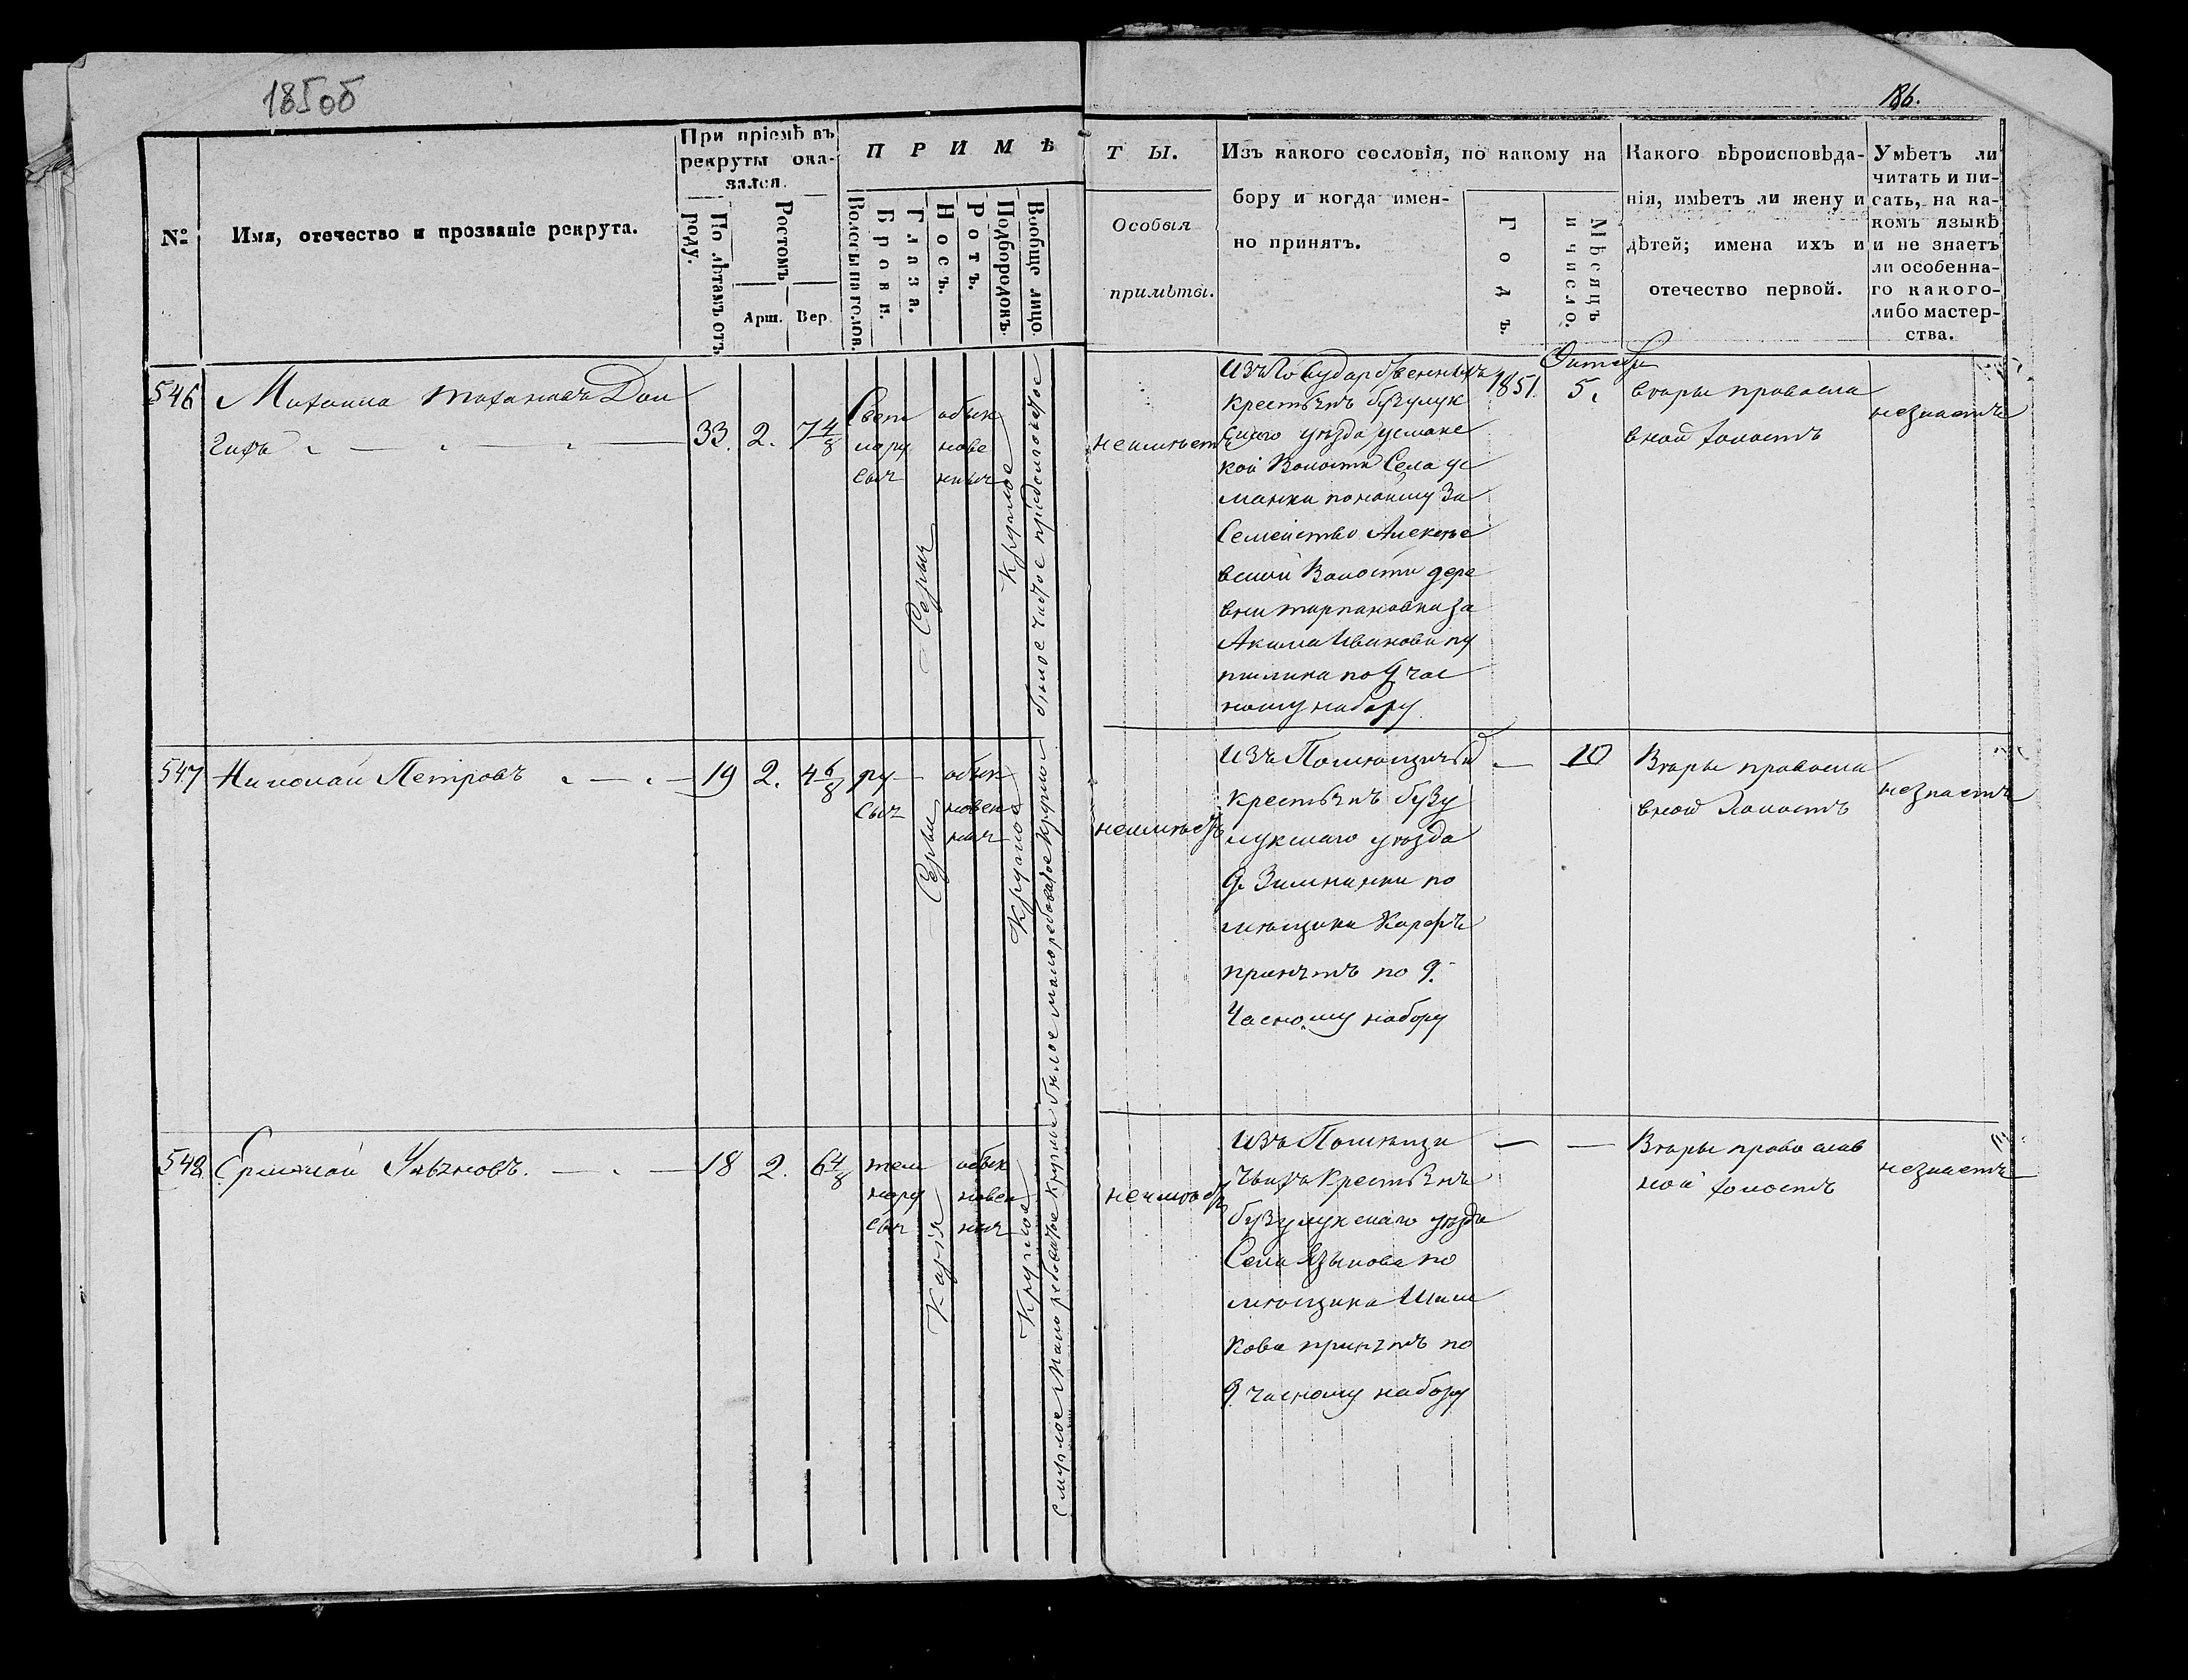 185об
186.
№
Имя, отечество и прозваніе рекрута.
При пріемѣ въ
рекруты ока-
зался.
По лѣтамъ отъ
роду.
Ростомъ
Арш.
Вер.
П Р И М Ѣ
Волосы на голов.
Брови.
Глаза.
Носъ.
Ротъ.
Подбородокъ.
Вообще лицо.
Т Ы.
Особыя
примѣты.
Изъ какого сословія, по какому на
бору и когда имен-
но принятъ.
Годъ.
Мѣсяцъ
и число.
Какого вѣроисповѣда-
нія, имѣетъ ли жену и
дѣтей; имена ихъ и
отечество первой.
Умѣетъ ли
читать и пи-
сать, на ка-
комъ языкѣ
и не знаетъ
ли особенна-
го какого-
либо мастер-
ства.
546
Дол
гихъ
33.
2.
7 4/8
Свет
лору
сыя
Серыя
обык
нове
ныя
Круглое
белое чистое
неимѣетъ
Изъ Государственныхъ
крестьянъ бузулук
скаго уезда усманс
кой Волости Села ус
манки по найму За
Семейство Алексѣе
вской Волости дере
вни
Акима Иванова
по 9 час
ному набору
1851.
Октября
5.
веры правосла
вной холостъ
незнаетъ
547
Николай Петровъ
19
2.
4 6/8
ру
сыя
Серыи
обык
новен
ныя
Круглое
белое малоребоватое Круглое
неимѣетъ
Изъ Помѣщичьих
крестьянъ бузу
лукскаго уѣзда
по
мѣщика
принятъ по 9.
Часному набору
10
Вѣры правосла
вной Холостъ
незнаетъ
548
Ермолай Ульяновъ.
18
2.
6 4/8
тем
нору
сыя
Карія
обык
новен
ныя
Круглое
смуглое малоребоватое Круглое
неимѣетъ
Изъ Помѣщи
чьихъ Крестьянъ
бузулукскаго уезда
Села Языкова по
мѣщика Шиш
кова принятъ по
9 часному набору
Вѣры православ
ной холостъ
незнаетъ